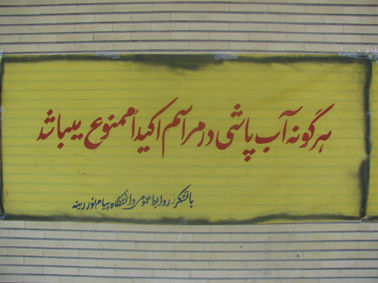 هرگونه آب پاشی در مراسم اکیداً ممنوع میباشد
باتشکر - روابط عمومی دانشگاه پیام نور رینه